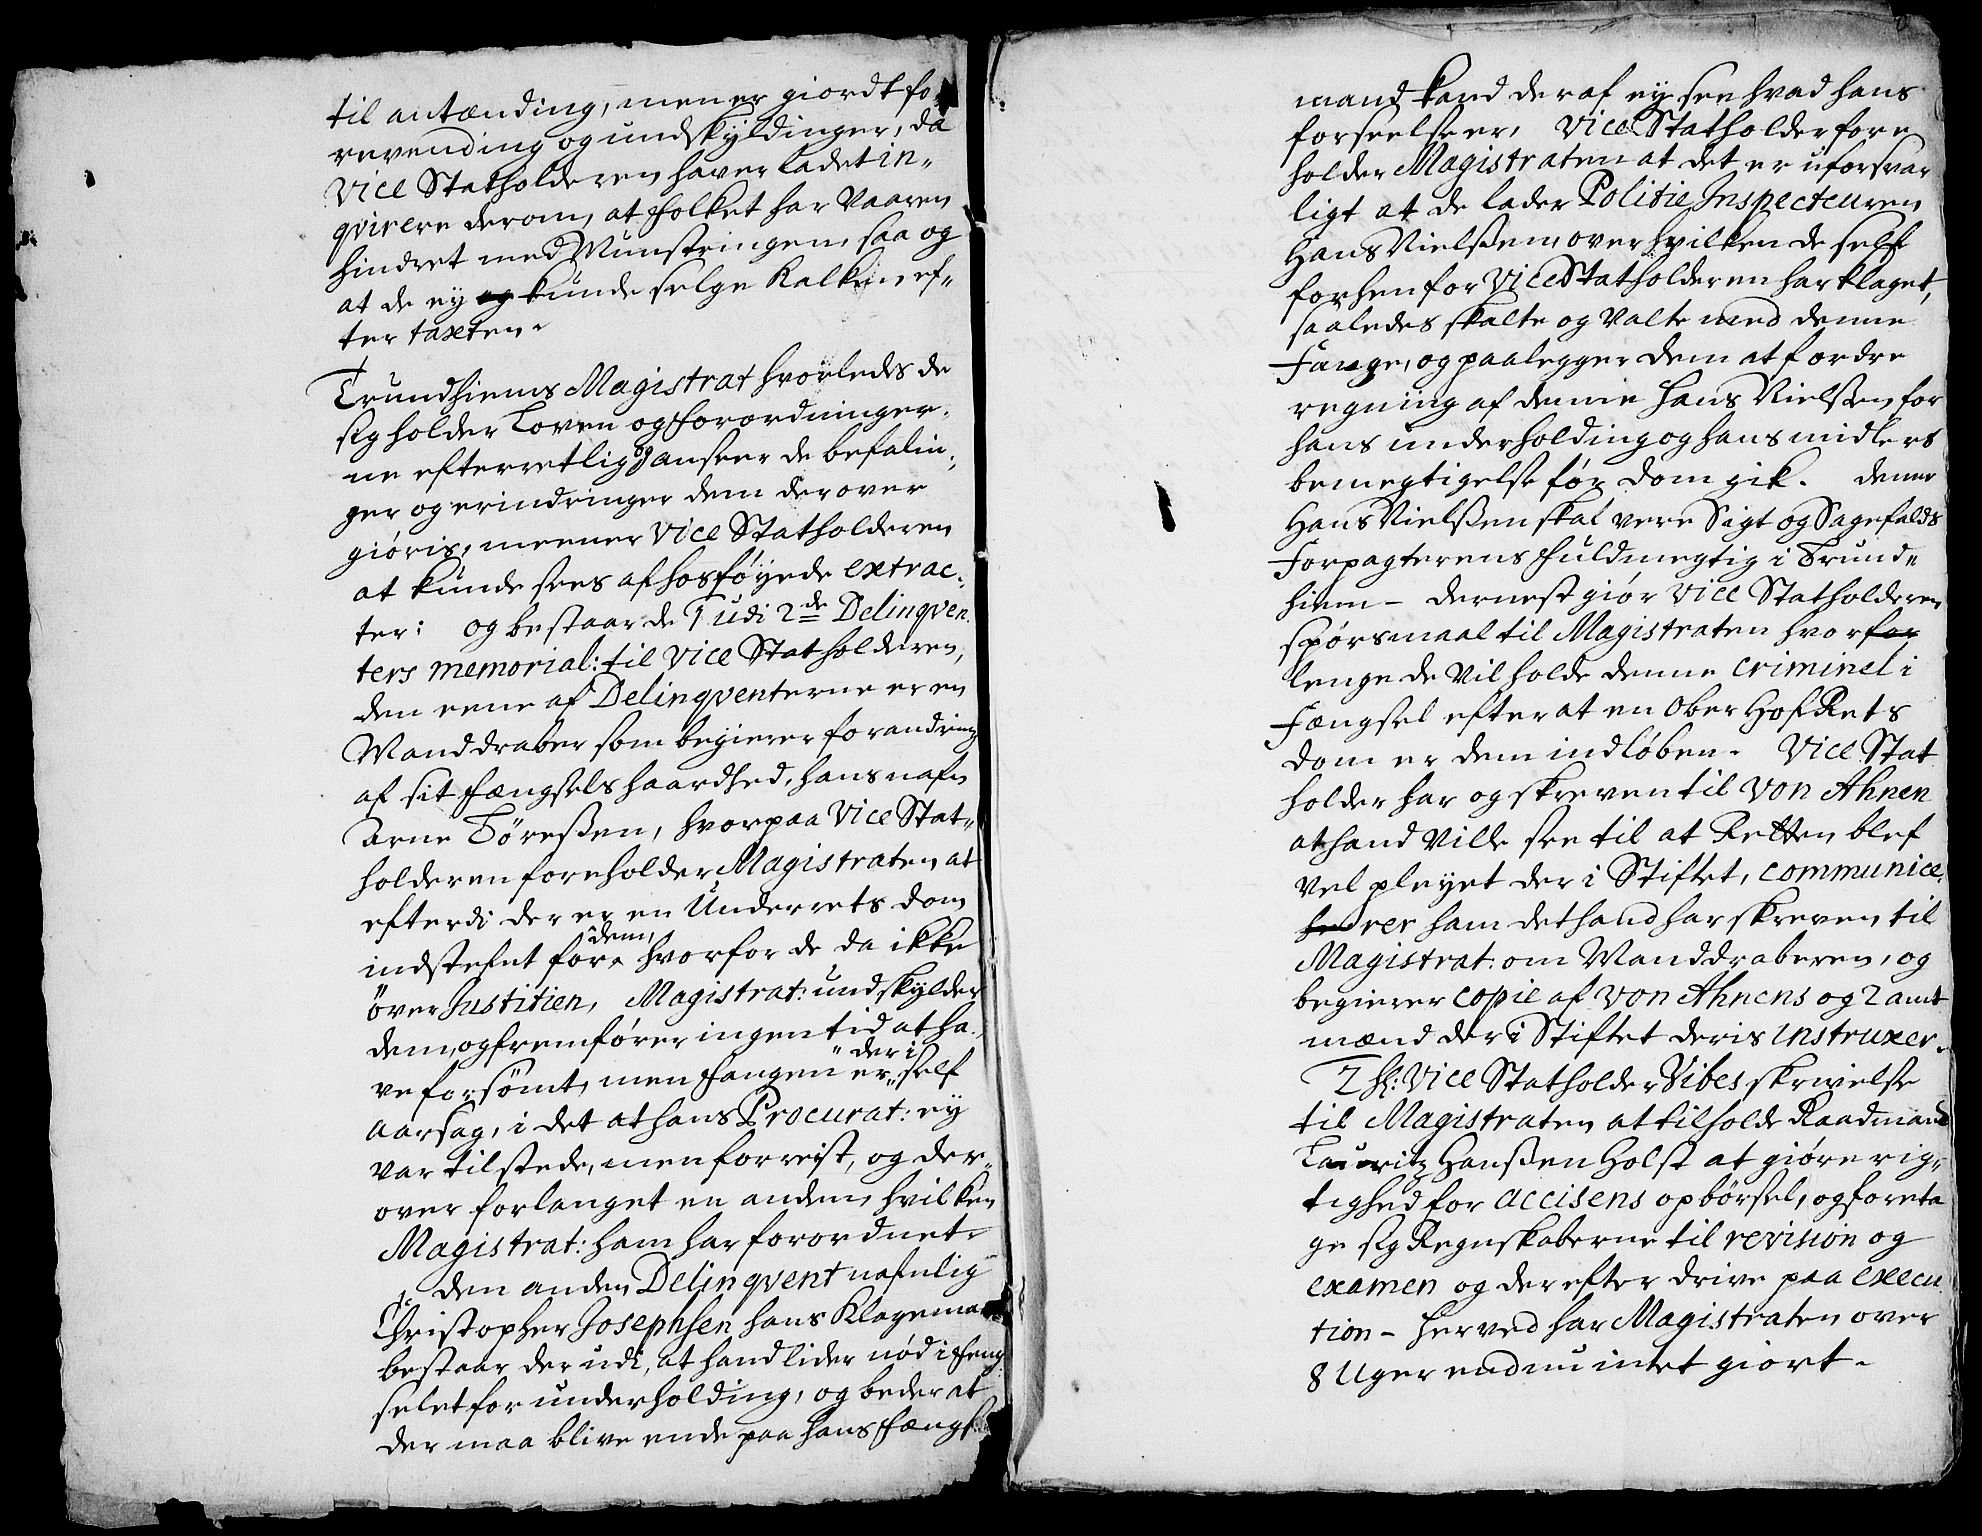 til antænding, men er giordt fo
revending og undskyldinger, da
Vice Statholderen haver ladet in„
qvirere derom, at folket har Vaaren
hindret med Munstringen, saa og
at de ey og kunde selge Kalken ef„
ter taxten.
Trundhiems Magistrat hvorledes de
sig holder Loven og forordninger„
ne efterretlig og anseer de befalin„
ger og erindringer dem derover
giøris, meener Vice Statholderen
at kunde sees af hosføyede extrac„
ter: og bestaar de 1 udi 2de Delinqven„
ters memorial: til Vice Statholderen,
den eene af Delinqventerne er en
Manddraber som begierer forandring
af sit fængsels haardhed, hans nafn
Arne Tøreßen, hvorpaa Vice Stat„
holderen foreholder Magistraten, at
efterdi der er en Underrets dom
indstefnt for dem, hvorfor de da ikke
øver Justitien, Magistrat: undskylder
dem, og fremfører ingen tid at ha„
ve forsømt, men fangen er der i self
aarsag, i det at hans Procurat: ey
var tilstede, men forreist, og der„
over forlanget en anden, hvilken
Magistrat: ham har forordnet.
den anden Delinqvent nafnlig
Christopher Josephsen hans Klagemaa
bestaar der udi, at hand lider nød i feng
selet for underholding, og beder at
der maa blive ende paa hans fængs
mand kand deraf ey see hvad hans
forseelse er, Vice Statholder fore
holder Magistraten at det er uforsvar
ligt at de lader Politie Inspecteuren
Hans Nielßen, over hvilken de self
forhen for Vice Statholderen har klaget,
saaledes skalte og Valte med denne
Fange, og paalegger dem at fordre
regning af denne Hans Nielßen for
hans underholding og hans midlers
bemegtigelse før dom gik. denne
Hans Nielßen skal vere Sigt og Sagefalds
Forpagterens fuldmegtig i Trund„
hiem - dernest giør Vice Statholderen
spørsmaal til Magistraten hvor for
lenge de vil holde denne criminel i
Fængsel efter at en Ober Hof Rets
dom er dem indløben. Vice Stat
holder har og skreven til Von Ahnen
at hand Ville see til at Retten blef
vel pleyet der i Stiftet, communice„
rer ham det hand har skreven til
Magistrat: om Manddraberen, og
begierer copie af von Ahnens og 2 amt
mænd der i Stiftet deris instruxer.
2 Hr: Vice Statholder Vibes skrivelse
til Magistraten at tilholde Raadmand
Lauritz Hanßen Holst at giøre rig„
tighed for accisens opbørsel, og foreta
ge sig Regnskaberne til revision og
examen og derefter drive paa execu
tion - herved har Magistraten over
8 Uger endnu intet giort.